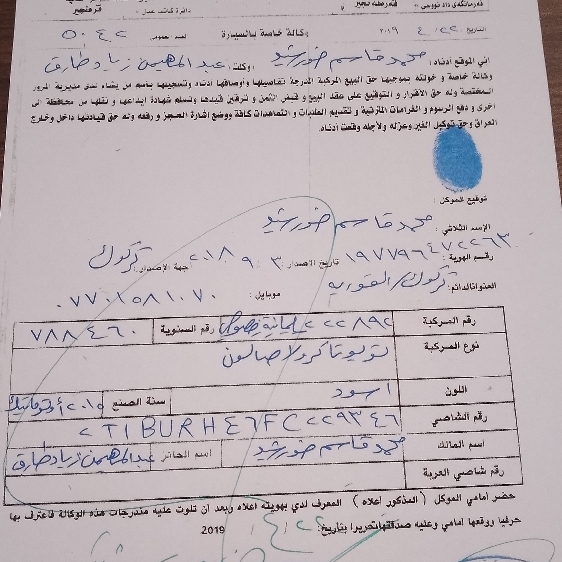 دائرة كاتب عدل
التاريخ ٤/٢٢ ٢٠١٩ وكالة خاصة بالسيارة العدد العمومي ٥٠٤٢
اني الموقع أدناه : محمد قاسم خورشيد وكلت : عبد المهيمن زياد طارق
وكالة خاصة و خولته بموجبها حق البيع المركبة المدرجة تفاصيلها وأوصافها أدناه وتسجيلها باسم من يشاء لدى مديرية المرور
المختصة وله حق الاقرار و التوقيع على عقد البيع و قبض الثمن و ترقين قيدها وتسلم شهادة إيداعها و نقلها من محافظة الى
اخرى و دفع الرسوم و الغرامات المترتبة و تقديم الطلبات و التعهدات كافة ووضع اشارة الحجز و رفعه وله حق قيادتها داخل وخارج
العراق وحق توكيل الغير وعزله ولأجله وقعت أدناه.
توقيع الموكل :
الإسم الثلاثي : محمد قاسم خورشيد
رقم الهوية : ١٩٧٧٩٦٤٧٢٢٦٣ تاريخ الاصدار ٢٠١٨٩٠٣ جهة الإصدار : كركوك
العنوان الدائم : كركوك / القوريه موبايل : ٠٧٧٠١٥٨١٠٧٠
رقم المركبة ٢٢٨٩٢ سليمانية خصوصي رقم السنوية ٧٨٨٤٦٠
نوع المركبة تويوتا كرولا صالون
اللون اسود سنة الصنع ٢٠١٥ أوتوماتيك
رقم الشاصي ٢TIBURH٤٦FC٢٢٩٣٤٦
اسم المالك محمد قاسم خورشيد اسم الحائز عبد المهيمن زياد طارق
رقم شاصي العربة
حضر امامي الموكل ( المذكور اعلاه ) المعرف لدي بهويته اعلاه وبعد أن تلوت عليه مندرجات هذه الوكالة فاعترف بها
حرفيا ووقعها امامي وعليه صدقتها تحريرا بتاريخ : ٤/٢٢ 2019